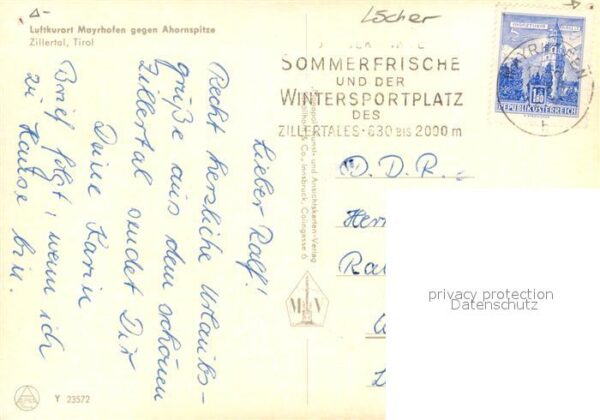 Luftkurort Mayrhofen gegen Ahornspitze
Zillertal, Tirol
Lscher
SOMMERFRISCHE
UND DER
WINTERSPORTPLATZ
DES
ZILLERTALES · 630 BIS 2000 m
MAYRHOFEN
1.80
REPUBLIK ÖSTERREICH
Lieber Ralf!
Recht herzliche Urlaubs-
grüße aus dem schönen
Zillertal sendet Dir
Deine Karin
Brief folgt, wenn ich
zu Hause bin.
Kunst- und Ansichtskarten-Verlag
& Co., Innsbruck, Colingasse 6
D. D. R.
Herr
privacy protection
Datenschutz
Y 23572